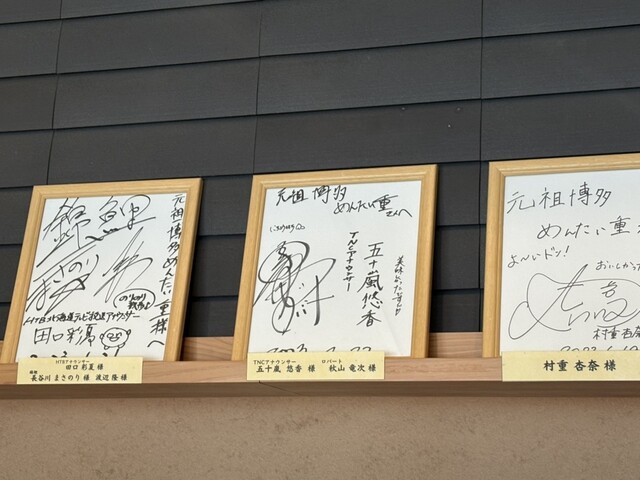 元祖博多めんたい重様へ
錦鯉
まさのり
隆
のりのり
HTB北海道テレビ放送アナウンサー
田口彩夏
HTBアナウンサー
田口 彩夏 様
錦鯉
長谷川 まさのり 様 渡辺 隆 様
元祖 博多
めんたい重さんへ
TNCアナウンサー
五十嵐悠香
美味しかったです!!
TNCアナウンサー
五十嵐 悠香 様
ロバート
秋山 竜次 様
元祖博多
めんたい重
よ〜いドン!
おいしかった
村重杏奈
村重 杏奈 様